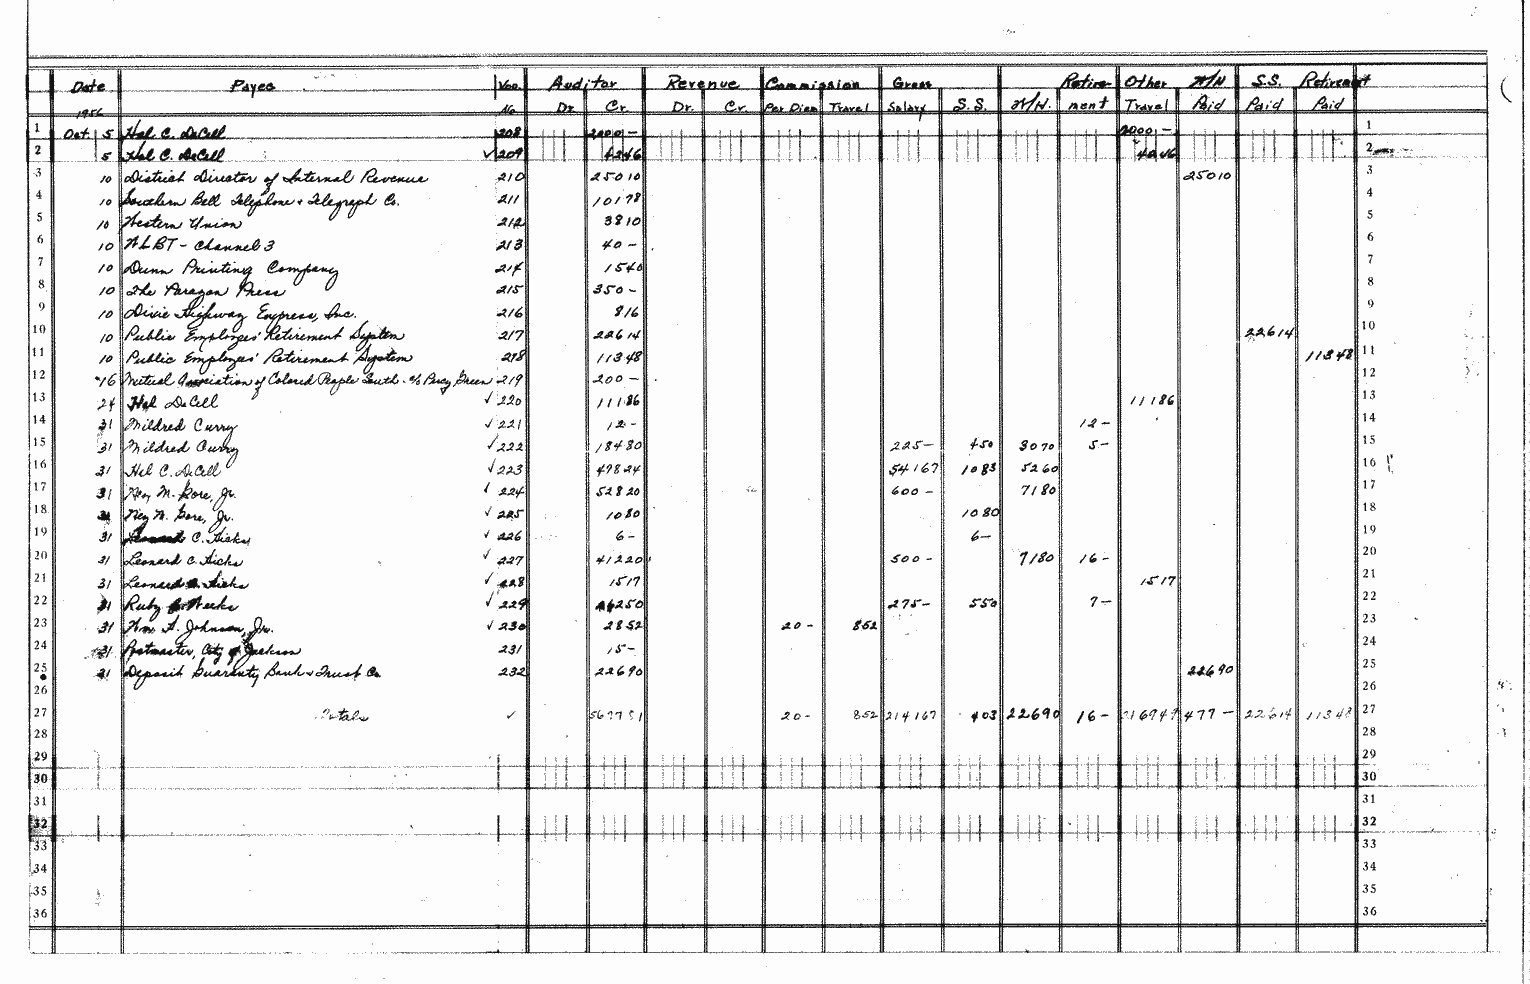 Date Payee Vou. Auditor Revenue Commission Gross Retire Other W/H S.S. Retirement
1956 No Dr. Cr. Dr. Cr. Per Diem Travel Salary S.S. W/H. ment Travel Paid Paid Paid
1 Oct. 5 Hal C. DeCell 208 2000 - 2000 - 1
2 5 Hal C. DeCell ✓ 209 2
3 10 District Director of Internal Revenue 210 250 10 250 10 3
4 10 Southern Bell Telephone & Telegraph Co. 211 101 78 4
5 10 Western Union 212 38 10 5
6 10 WLBT - Channel 3 213 40 - 6
7 10 Dunn Printing Company 214 15 40 7
8 10 The Paragon Press 215 350 - 8
9 10 Dixie Highway Express, Inc. 216 8 16 9
10 10 Public Employees' Retirement System 217 226 14 226 14 10
11 10 Public Employees' Retirement System 218 113 48 113 48 11
12 16 Mutual Association of Colored People South - c/o Percy Green 219 200 - 12
13 24 Hal DeCell ✓ 220 111 86 111 86 13
14 31 Mildred Curry ✓ 221 12 - 12 - 14
15 31 Mildred Curry ✓ 222 184 80 225 - 4 50 30 70 5 - 15
16 31 Hal C. DeCell ✓ 223 478 24 541 67 10 83 52 60 16
17 31 Ney M. Gore, Jr. ✓ 224 528 20 600 - 71 80 17
18 31 Ney M. Gore, Jr. ✓ 225 10 80 10 80 18
19 31 Leonard C. Hicks ✓ 226 6 - 6 - 19
20 31 Leonard C. Hicks ✓ 227 412 20 500 - 71 80 16 - 20
21 31 Leonard C. Hicks ✓ 228 15 17 15 17 21
22 31 Ruby Weeks ✓ 229 262 50 275 - 5 50 7 - 22
23 31 Wm. A. Johnson, Jr. ✓ 230 28 52 20 - 8 52 23
24 31 Postmaster, City of Jackson 231 15 - 24
25 31 Deposit Guaranty Bank & Trust Co 232 226 90 226 90 25
26 26
27 Totals ✓ 20 - 8 52 2141 67 4 03 226 90 16 - 2169 49 477 - 226 14 113 48 27
28 28
29 29
30 30
31 31
32 32
33 33
34 34
35 35
36 36